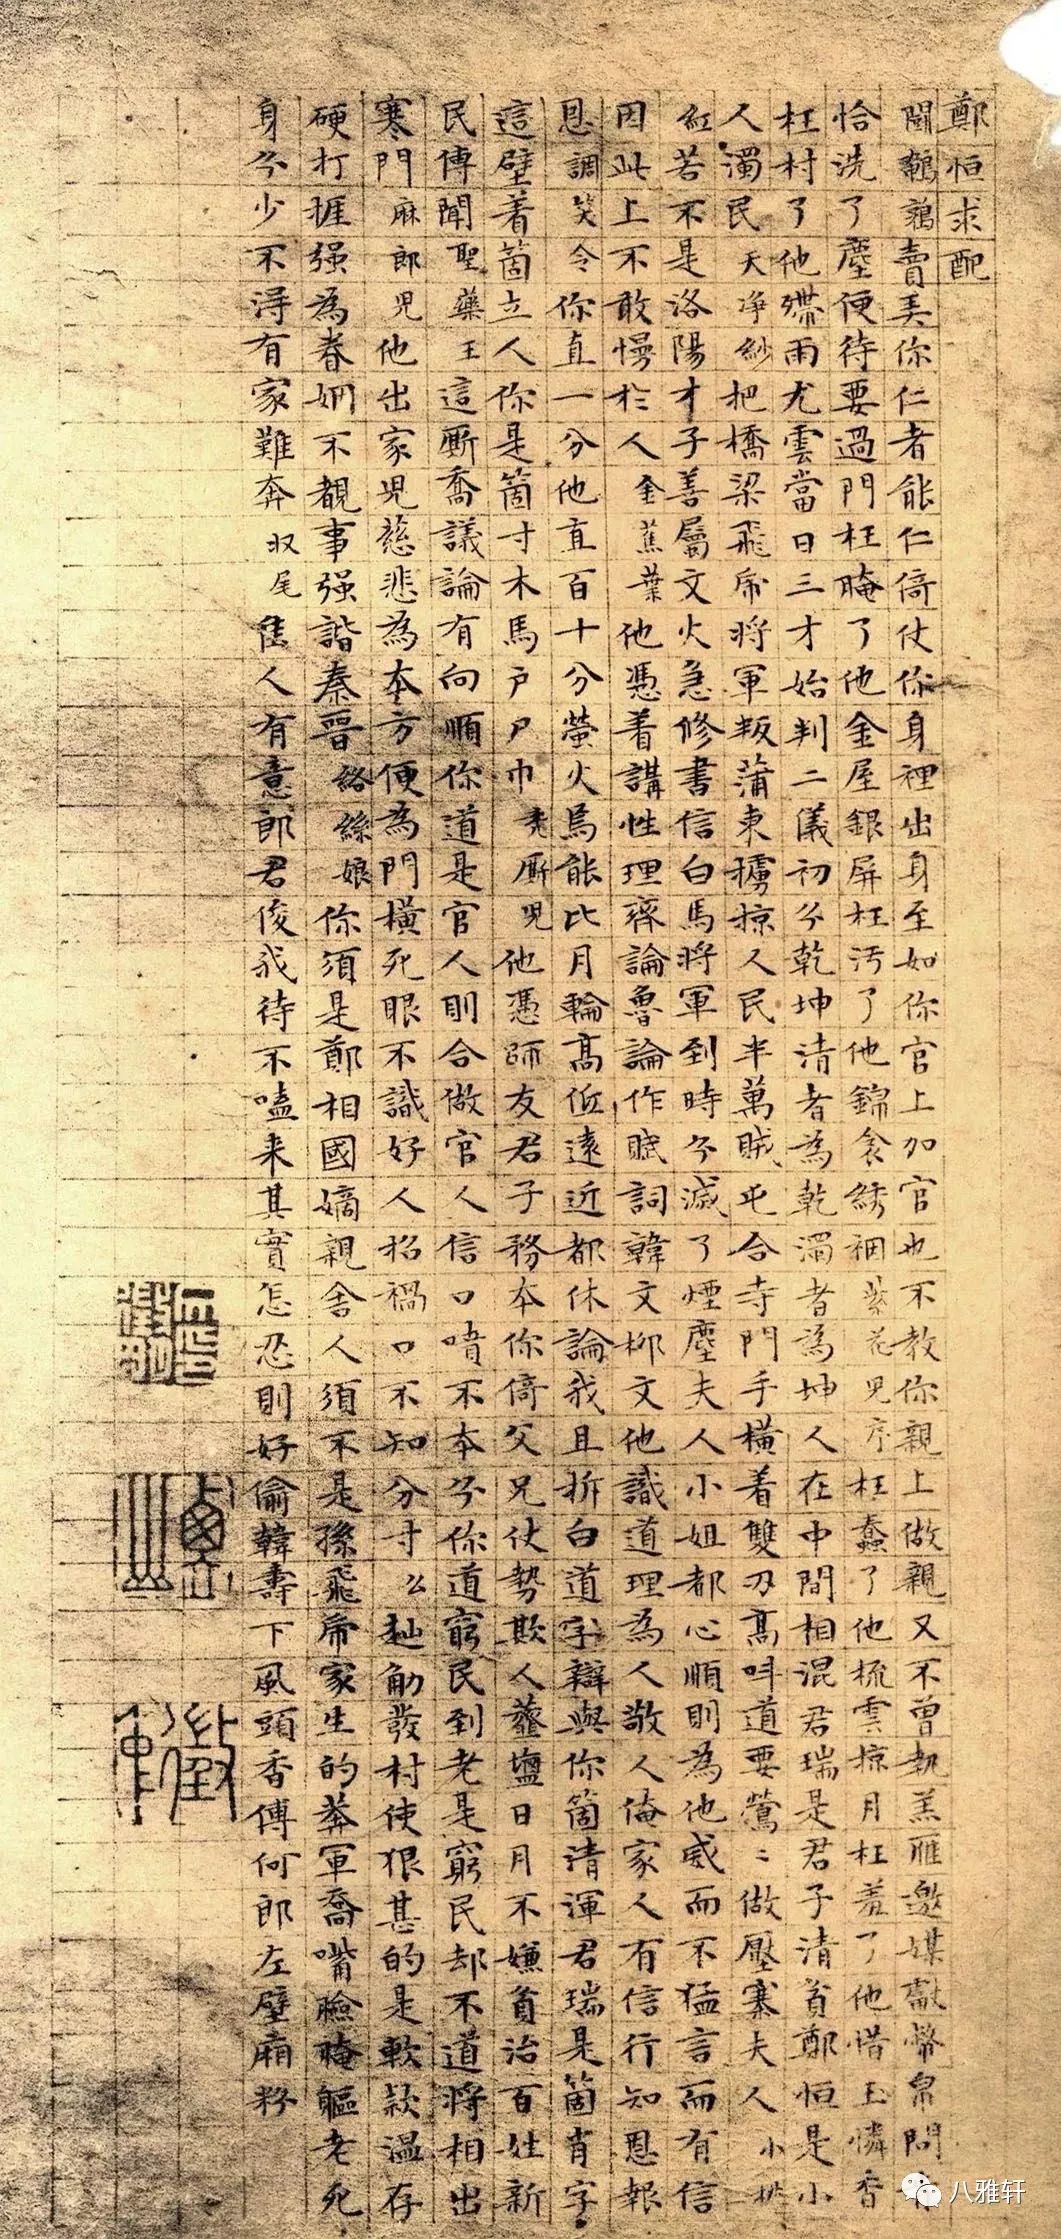 鄭恒求配
鬭鵪鶉賣美你仁者能仁倚仗你身裡出身至如你官上加官也不教你親上做親又不曾執羔雁邀媒獻幣帛問
恰洗了塵便待要過門枉腌了他金屋銀屏枉污了他錦衾綉裀紫花兒序枉蠢了他梳雲掠月枉羞了他惜玉憐香
枉村了他殢雨尤雲當日三才始判二儀初分乾坤清者為乾濁者為坤人在中間相混君瑞是君子清貧鄭恒是小
人濁民天淨紗把橋梁飛虎將軍叛蒲東擄掠人民半萬賊屯合寺門手橫着雙刃高呌道要鶯〻做壓寨夫人小桃
紅若不是洛陽才子善屬文火急修書信白馬將軍到時分滅了煙塵夫人小姐都心順則為他威而不猛言而有信
因此上不敢慢於人金蕉葉他憑着講性理齊論魯論作賦詞韓文柳文他識道理為人敬人俺家人有信行知恩報
恩調笑令你直一分他直百十分螢火焉能比月輪高低遠近都休論我且拆白道字辯與你箇清渾君瑞是箇肖字
這壁着箇立人你是箇寸木馬戶尸巾禿廝兒他憑師友君子務本你倚父兄仗勢欺人虀鹽日月不嫌貧治百姓新
民傳聞聖藥王這厮喬議論有向順你道是官人則合做官人信口噴不本分你道窮民到老是窮民却不道將相出
寒門麻郎兒他出家兒慈悲為本方便為門橫死眼不識好人招禍口不知分寸么赸觔發村使狠甚的是軟款温存
硬打捱强為眷姻不覩事强諧秦晉絡絲娘你須是鄭相國嫡親舍人須不是孫飛虎家生的莽軍喬嘴臉腌軀老死
身分少不得有家難奔收尾隹人有意郎君俊我待不嗑来其實怎忍則好偷韓壽下風頭香傅何郎左壁廂粉
八雅轩